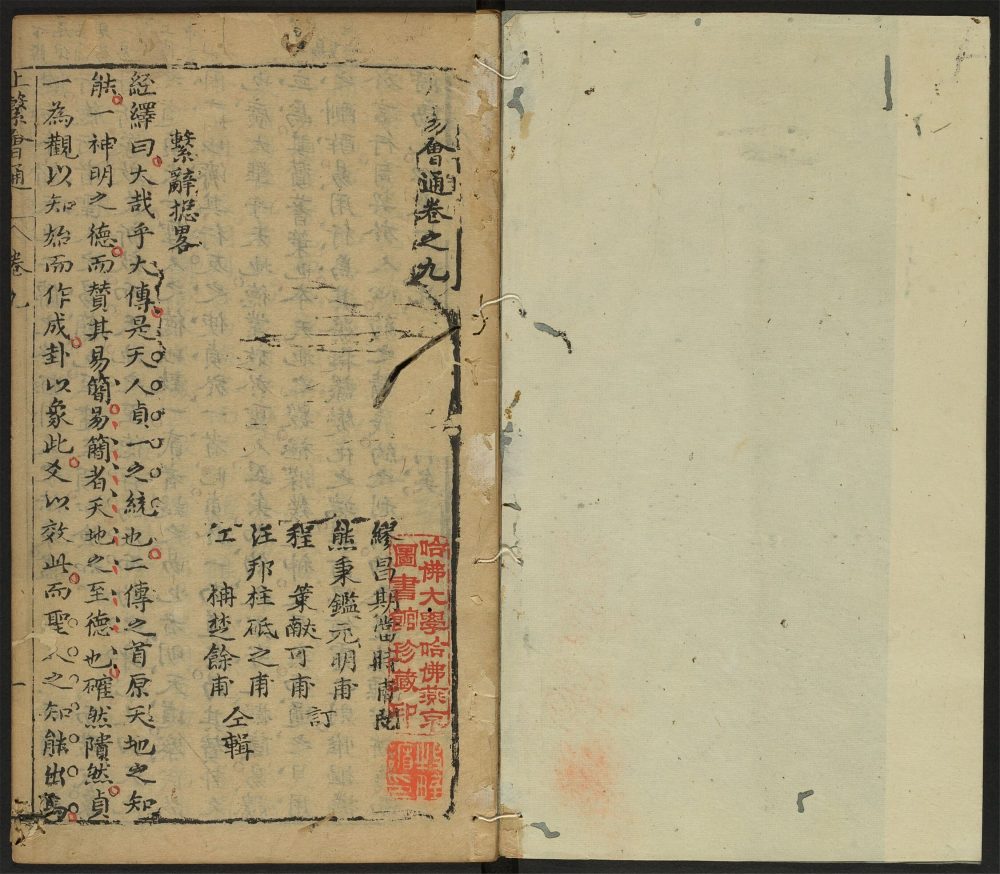 易會通卷之九
繆昌期當時甫閱
熊秉鑑元明甫
程策献可甫訂
汪邦柱砥之甫
江柟楚餘甫仝輯
繫辭揔畧
經繹曰大哉乎大傳是天人貞一之統也二傳之首原天地之知
能一神明之德而贊其易簡易簡者天地之至德也確然隤然貞
一為觀以知始而作成卦以象此爻以效此而聖人之知能出焉
上繫會通
卷九
一
哈佛大學哈佛燕京
圖書館珍藏印